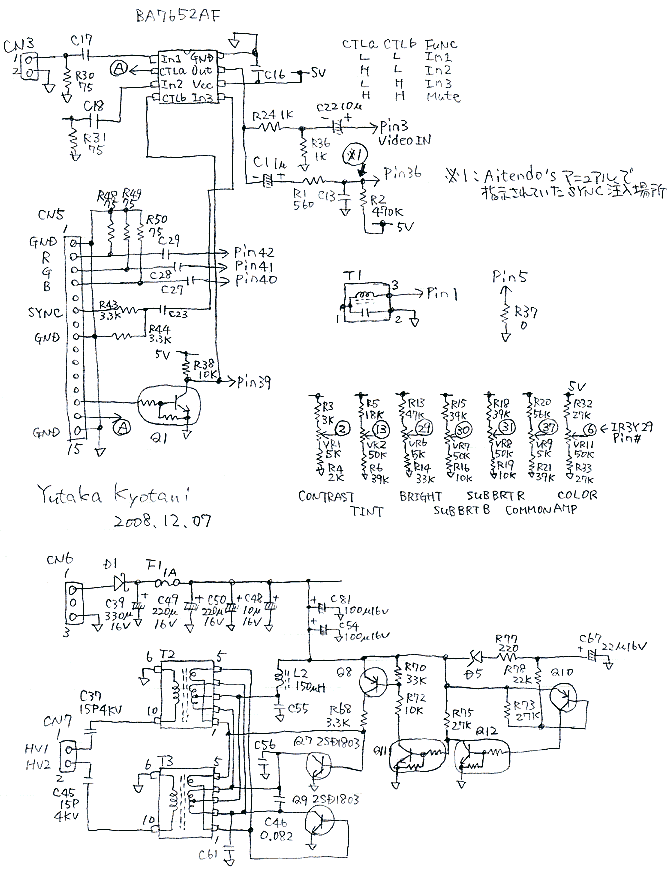 BA7652AF
CN3
1
2
C17
R30
75
In1 GND
CTLa Out
In2 Vcc
CTLb In3
A
C18
R31
75
C16
5V
CTLa CTLb Func
L L In1
H L In2
L H In3
H H Mute
R24 1K
C22 10µ
- +
Pin3
Video IN
R36
1K
C1 1µ
- +
R1
560
C13
※1
Pin36
R2
470K
5V
※1: Aitendo'sマニュアルで
指示されていたSYNC注入場所
CN5
1
GND
R
G
B
SYNC
GND
GND
15
R48
75
R49
75
R50
75
C29
C28
C27
Pin42
Pin41
Pin40
R43
3.3K
C23
R44
3.3K
5V
R38
10K
Pin39
A
Q1
T1
3
1
2
Pin1
Pin5
R37
0
5V
R3
3K
2
VR1
5K
R4
2K
R5
18K
13
VR2
50K
R6
39K
R13
47K
29
VR6
5K
R14
33K
R15
39K
30
VR7
50K
R16
10K
R18
39K
31
VR8
50K
R19
10K
R20
56K
37
VR9
5K
R21
39K
R32
27K
6
VR11
50K
R33
27K
IR3Y29
Pin#
CONTRAST
TINT
BRIGHT
SUBBRT B
SUBBRT R
COMMON AMP
COLOR
Yutaka Kyotani
2008.12.07
CN6
1
3
D1
F1 1A
C39
330µ
16V
C49
220µ
16V
C50
220µ
16V
C48
10µ
16V
C81
100µ16V
C54
100µ16V
T2
6
5
10
1
L2
150µH
C55
Q8
R68
3.3K
R70
33K
R72
10K
R75
27K
D5
R77
220
R78
22K
R73
27K
Q10
C67
22µ16V
Q11
Q12
C37
15P4KV
CN7
1
HV1
HV2
2
C45
15P
4KV
T3
6
5
10
1
C56
Q7 2SD1803
Q9 2SD1803
C46
0.082
C61